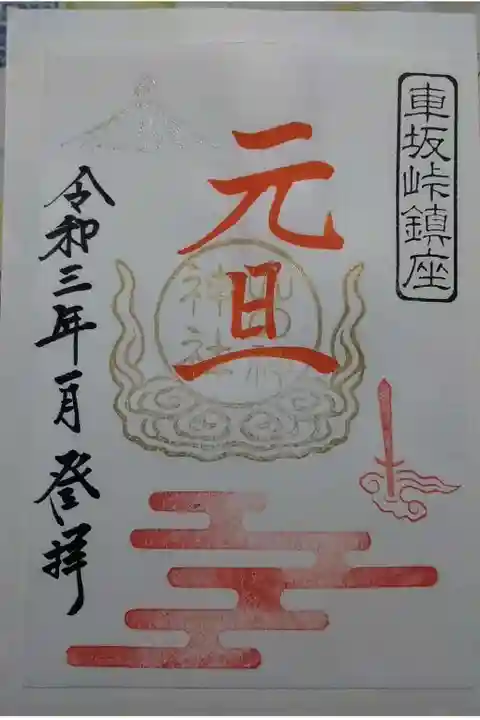 車坂峠鎮座
元旦
神社
令和三年一月登拝